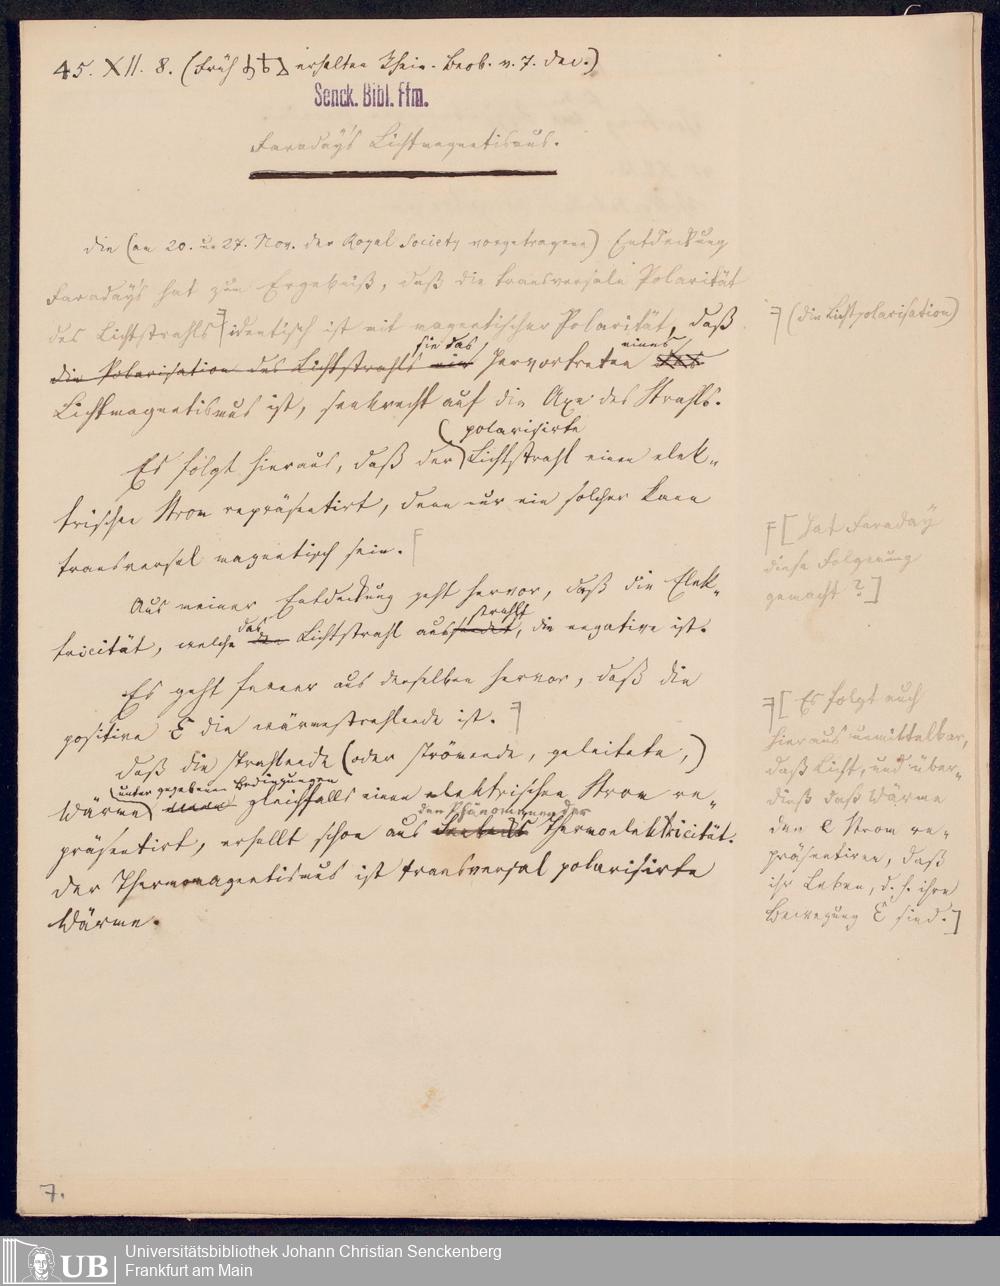 45. XII. 8. (Früh erhalten Rhein. Beob. v. 7. Dec.)
Senck. Bibl. Ffm.
Faraday's Lichtmagnetismus.
Die (am 20. u. 27. Nov. der Royal Society vorgetragene) Entdeckung
Faradays hat zum Ergebniß, daß die transversale Polarität
des Lichtstrahls identisch ist mit magnetischer Polarität, daß
(die Lichtpolarisation)
sie das eines
die Polarisation des Lichtstrahls ein Hervortreten des
Lichtmagnetismus ist, senkrecht auf die Axe des Strahls.
polarisirte
Es folgt hieraus, daß der Lichtstrahl einen elek-
trischen Strom repräsentirt, denn nur ein solcher kann
transversal magnetisch sein.
[Hat Faraday
diese Folgerung
gemacht?]
Aus meiner Entdeckung geht hervor, daß die Elek-
das strahlt
tricität, welche Lichtstrahl aussendet, die negative ist.
Es geht ferner aus derselben hervor, daß die
positive E die wärmestrahlende ist.
[Es folgt auch
hieraus unmittelbar,
daß Licht, und über-
dieß daß Wärme
den E Strom re-
präsentiren, daß
ihr Leben, d. h. ihre
Bewegung E sind.]
Daß die strahlende (oder strömende, geleitete,)
unter gegebenen Bedingungen
Wärme einen gleichfalls einen elektrischen Strom re-
den Phänomenen der
präsentirt, erhellt schon aus Thermoelektricität.
Der Thermomagnetismus ist transversal polarisirte
Wärme.
7.
UB
Universitätsbibliothek Johann Christian Senckenberg
Frankfurt am Main